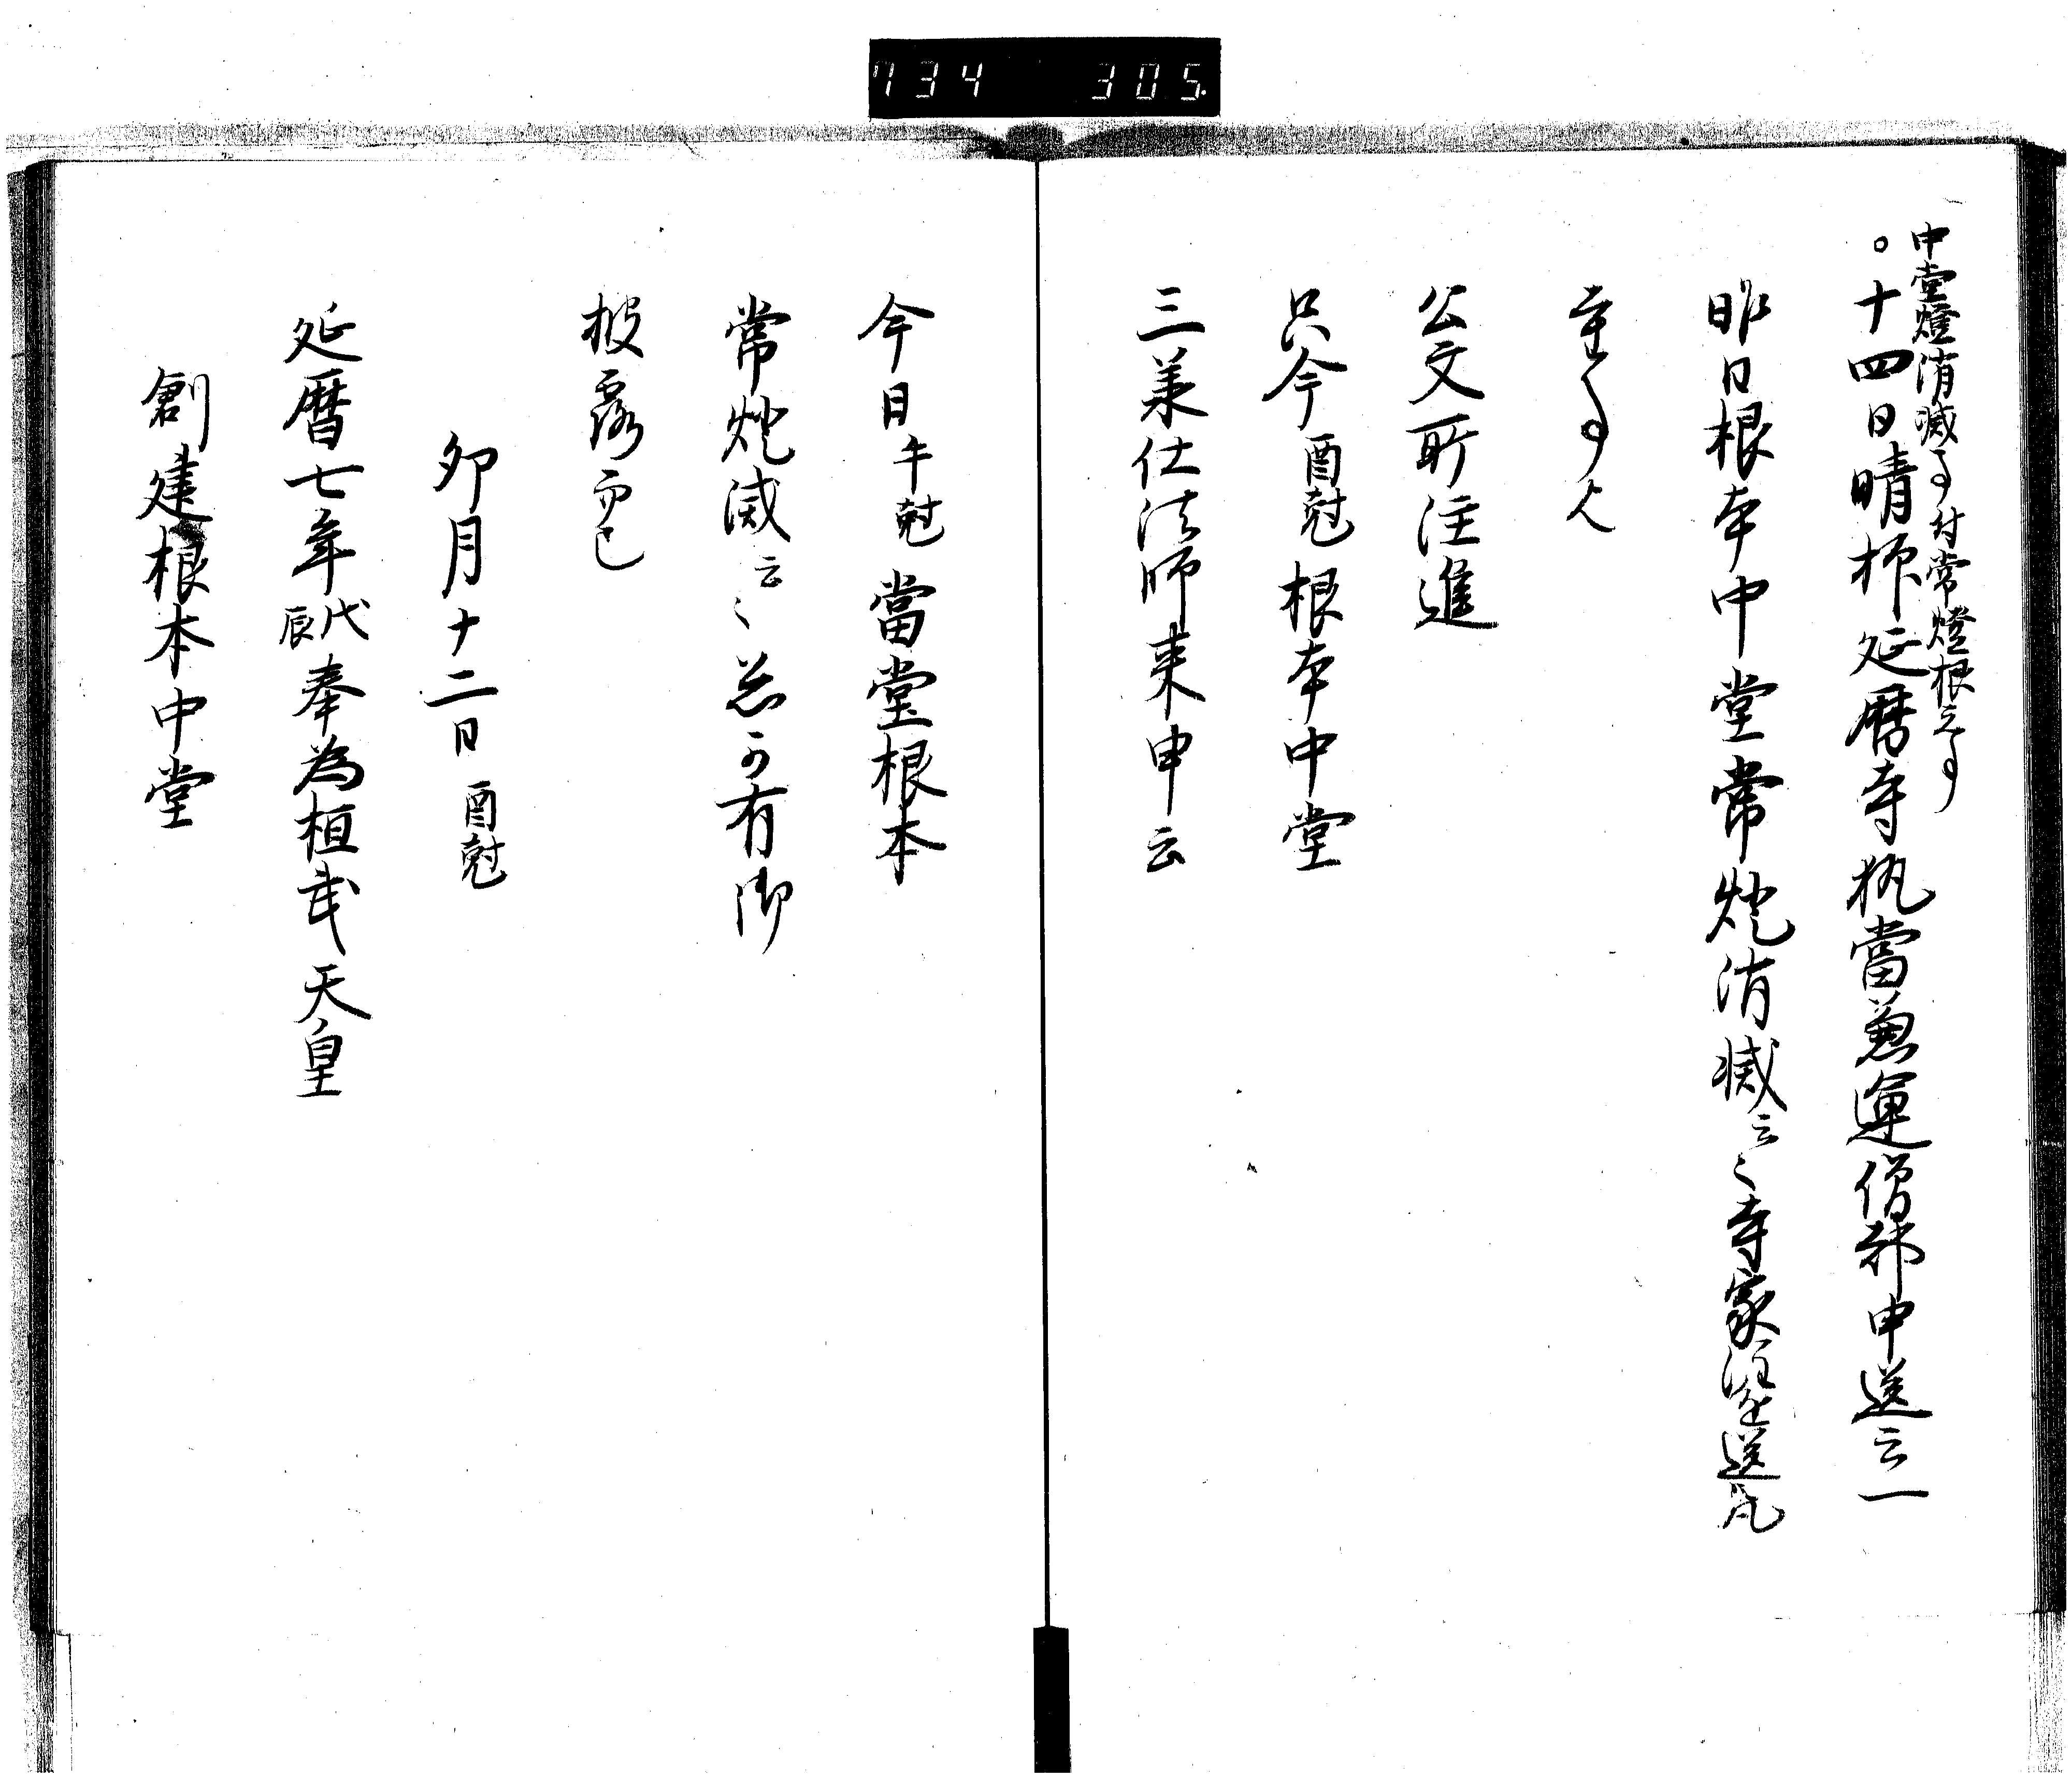 734 305
中堂燈消滅事付常燈根元事
。十四日晴抑延暦寺執當兼運僧都申送云一
昨日根本中堂常燈消滅云々寺家注進送之
公文所注進
只今酉尅根本中堂
三承仕法師来申云
今日午尅當堂根本
常燈滅云々忩可有御
披露而已
卯月十二日酉尅
延暦七年戊辰奉為桓武天皇
創建根本中堂